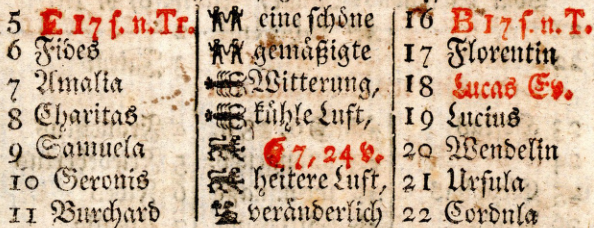 5 E 17 ſ. n. Tr. eine ſchöne 16 B 17 ſ. n. T.
6 Fides gemäßigte 17 Florentin
7 Amalia Witterung, 18 Lucas Ev.
8 Charitas kühle Luft, 19 Lucius
9 Samuela ☾ 7, 24 v. 20 Wendelin
10 Geronis heitere Luft, 21 Urſula
11 Burchard veränderlich 22 Cordula